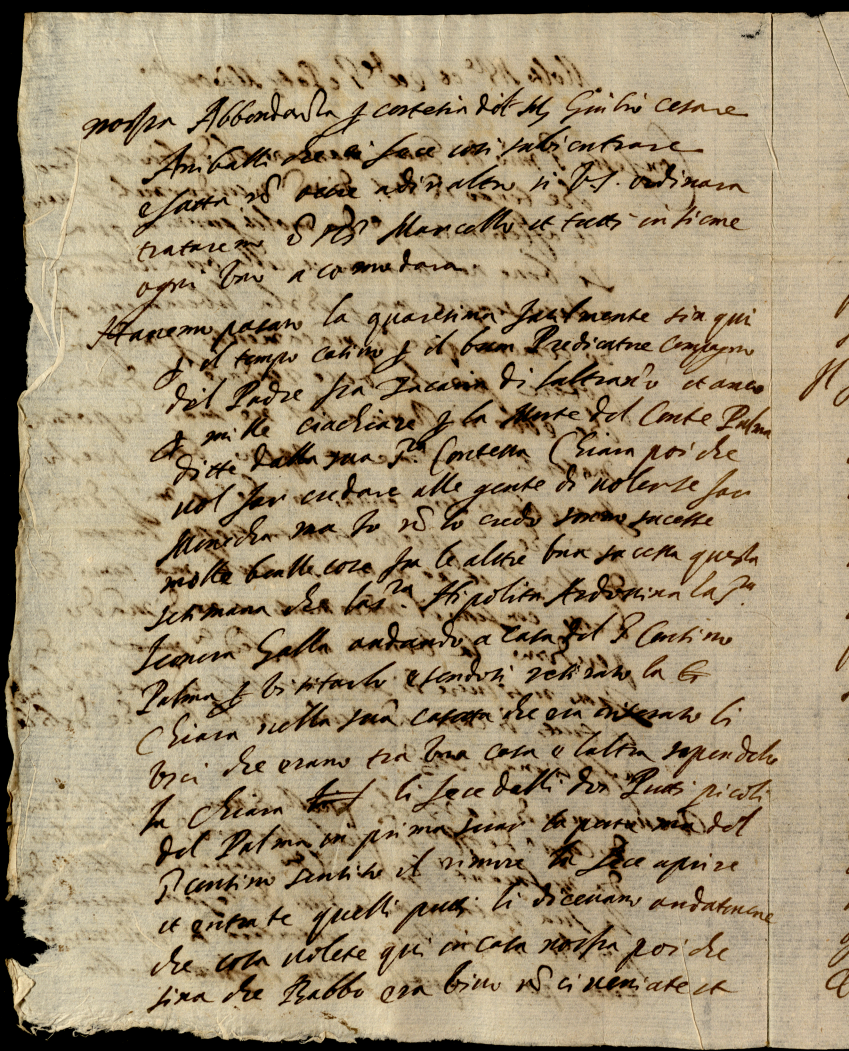 nostra Abbondanza p cortesia del Sig Giulio Cesare
Aniballi che si fece cosi subientrare
e fatta nō occe adir altro si V.S. ordinara
trataremo cō Marcello et tutti insieme
ogni Uno acomodara
Havemo pasato la quaresima facilmente sin qui
p il tempo cativo p il bon Predicatore Compagno
del Padre fra Zacaria di et anco
p mille ciachiare p la Morte del Conte Palma
ditte dalla sua Contessa Chiara poi che
vol far credare alle gente di volerse far
Monicha ma Io nō lo credo sonno sucesse
molte belle cose fra le altre una sucessa questa
setimana che la Sra. Hipolita Ardoina la Sra.
Galla andando a casa del S. Contino
Palma p visitarlo esendosi retirato la C.
Chiara nella sua casetta che era li
usci che erano tra una casa e laltra sapendolo
la Chiara li fece dalli doi Putti picoli
del Palma in prima la porta ma del
S. Contino sentito il rumore la fece aprire
et entrate quelli putti li dicevano andatevene
che cosa volete qui in casa nostra poi che
sina che Babbo era vivo nō ci veniate et